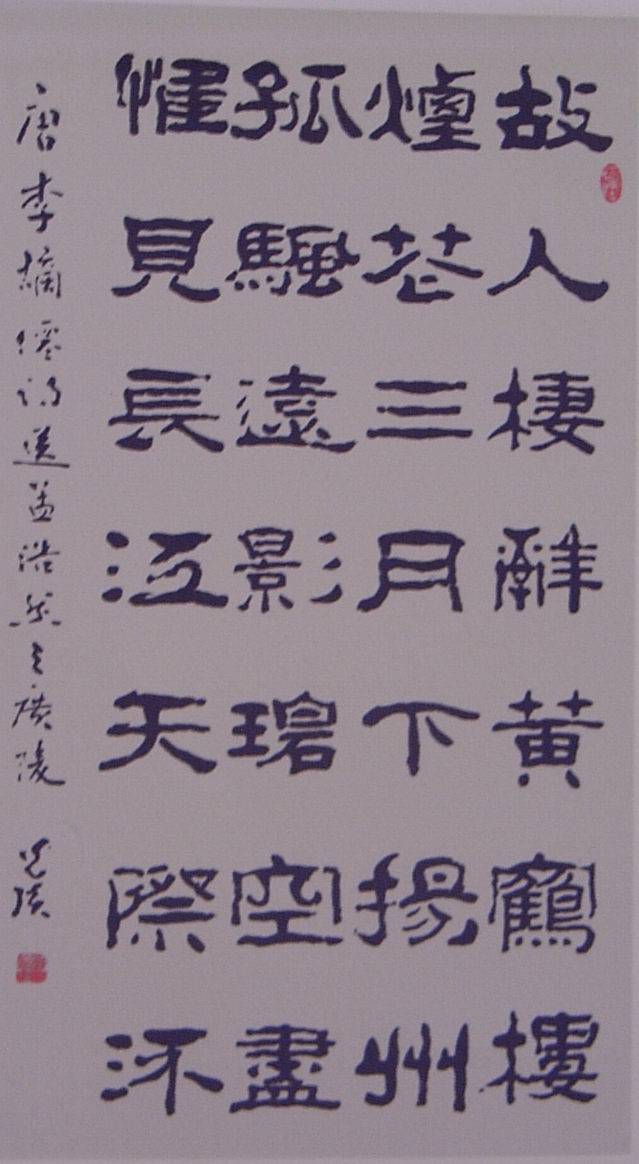 故人棲辭黃鶴樓
煙芲三月下揚州
孤颿遠影碧空盡
惟見長江天際流
唐李謫僊詩送孟浩然之廣陵